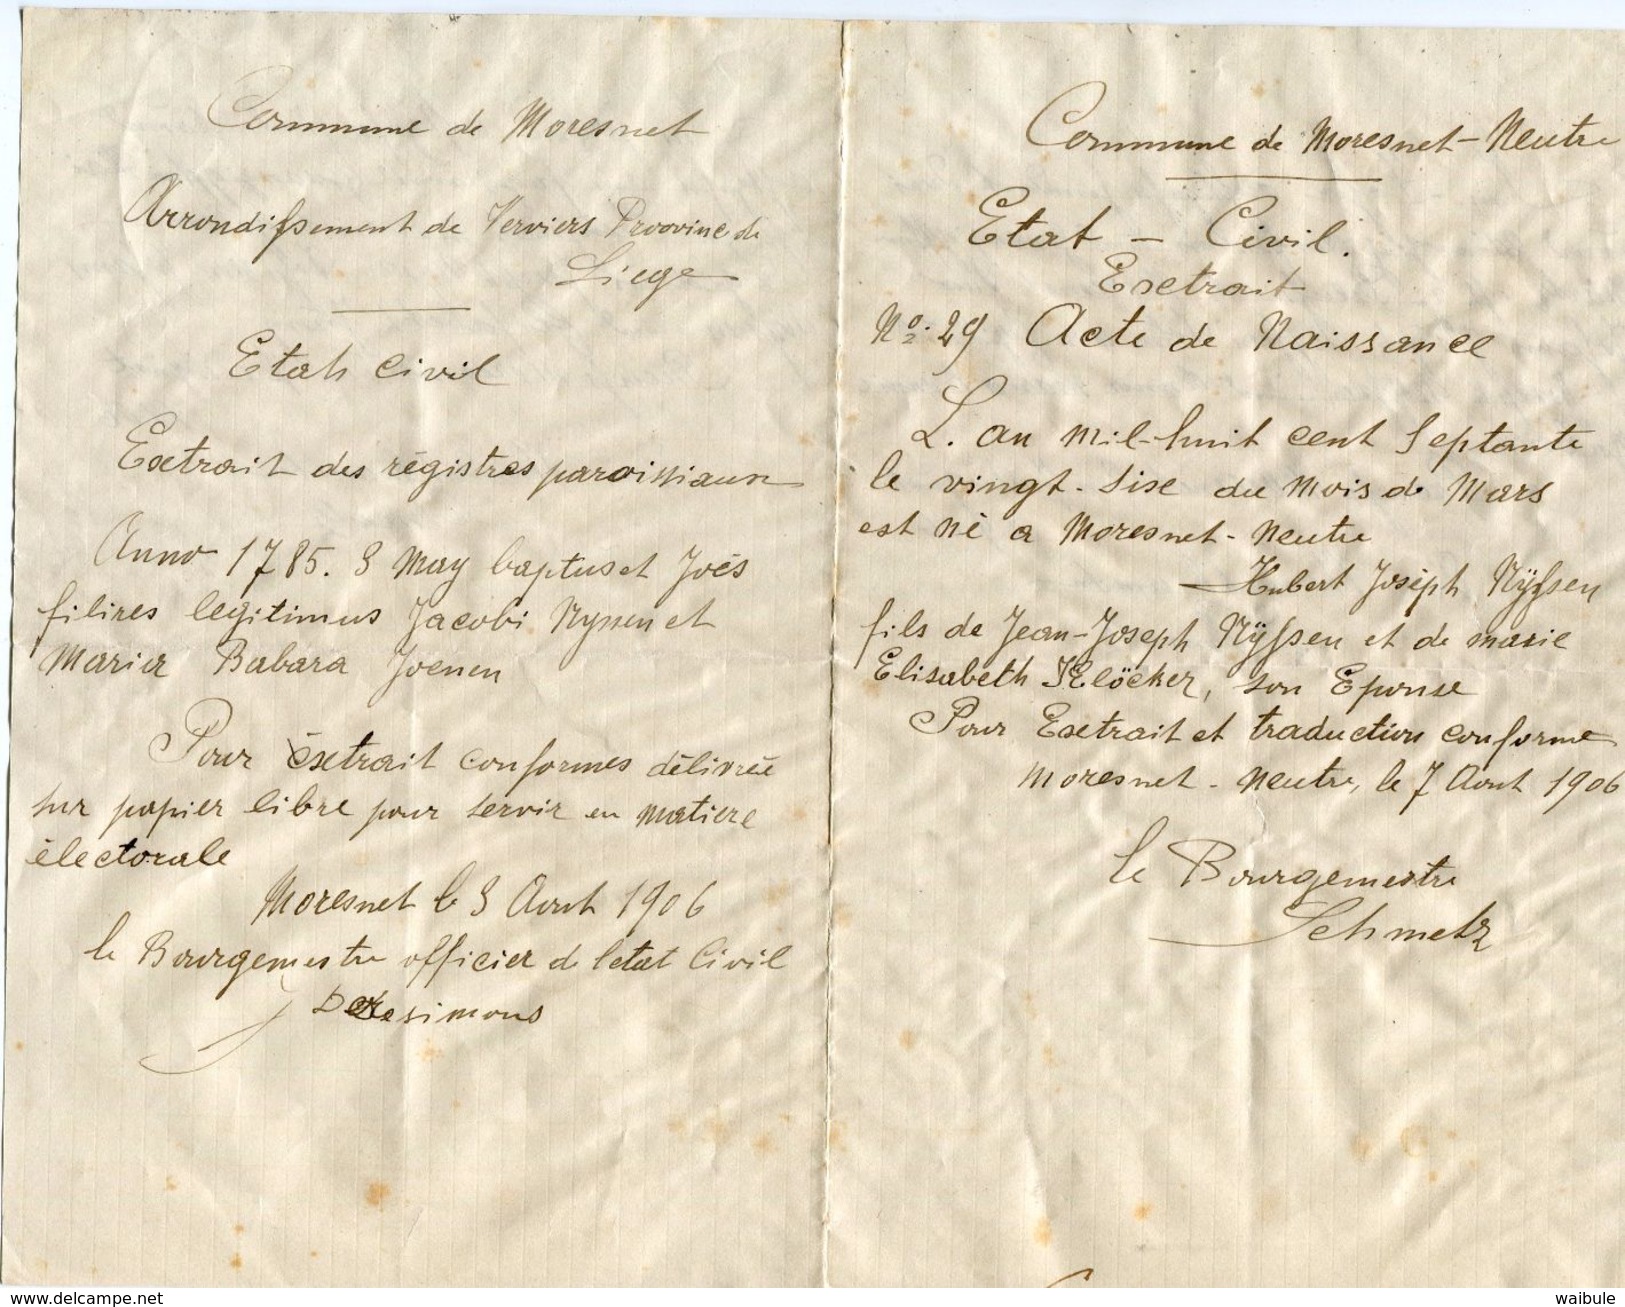 Commune de Moresnet
Arrondissement de Verviers Province de
Liege
Etat Civil
Extrait des régistres paroissiaux
Anno 1785. 8 May baptus et Joês
filires legitimus Jacobi Nyssen et
Maria Babara Joenen
Pour éxtrait conformes délivrée
sur papier libre pour servir en matiere
électorale
Moresnet le 8 Aout 1906
le Bourgemestre officier de letat Civil
simons
Commune de Moresnet-Neutre
Etat - Civil.
Extrait
No. 29 Acte de Naissance
L. an mil-huit cent Septante
le vingt-sixe du mois de Mars
est né a Moresnet-Neutre
Hubert Joséph Nÿssen
fils de Jean-Joseph Nÿssen et de marie
Elisabeth Klöcker, son Epouse
Pour Extrait et traduction conforme
Moresnet-Neutre, le 7 Aout 1906
le Bourgemestre
Schmetz
www.delcampe.net
waibule